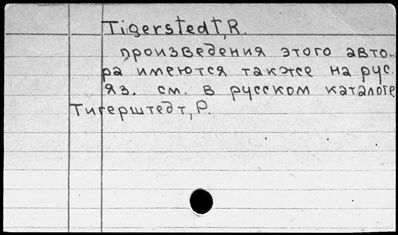 Tigerstedt, R.
произведения этого авто-
ра имеются также на рус.
яз. см. в русском каталоге
Тигерштедт, Р.